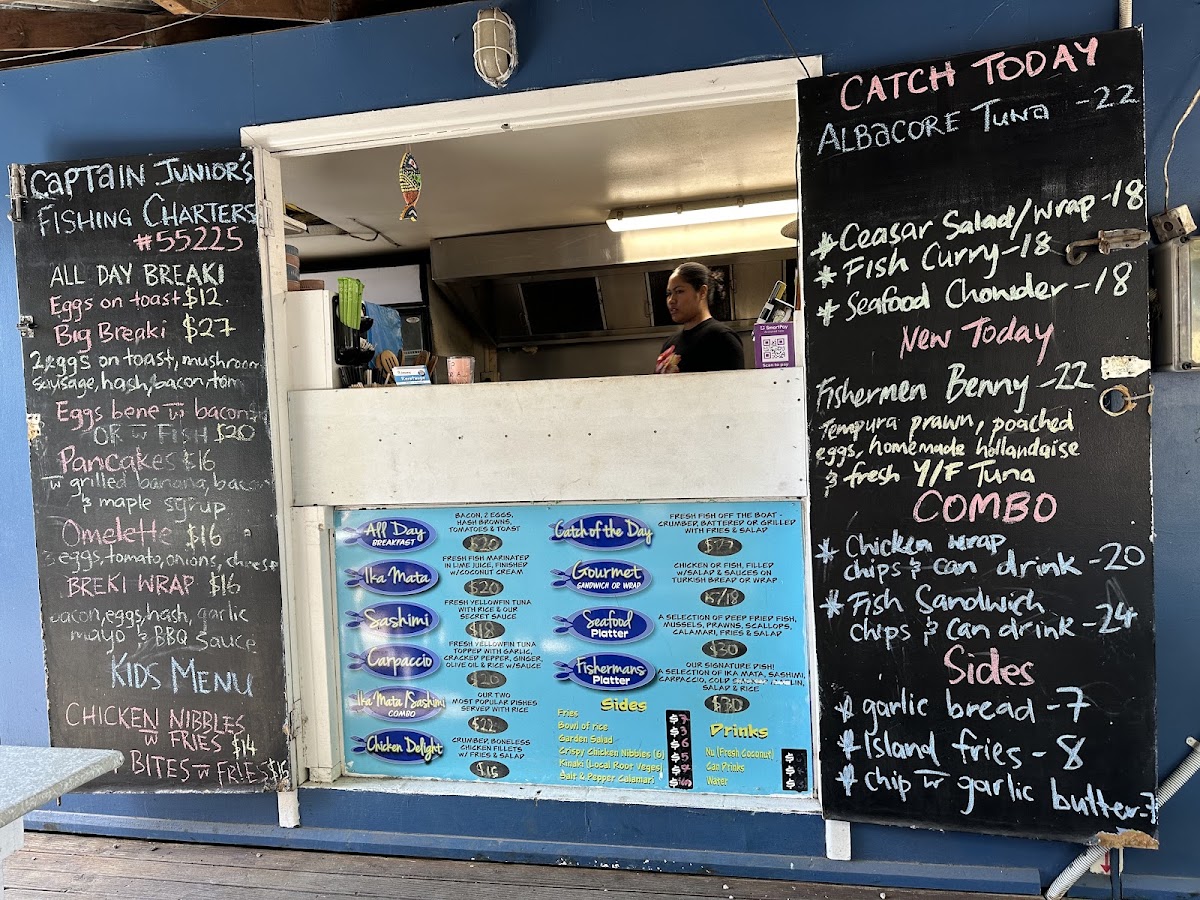 CAPTAIN JUNIOR'S
FISHING CHARTERS
#55225
ALL DAY BREAKI
Eggs on toast $12.
Big Breaki $27
2 eggs on toast, mushroom
sausage, hash, bacon, tom
Eggs bene w bacon
OR w FISH $20
Pancakes $16
w grilled banana, bacon
& maple syrup
Omelette $16
3 eggs, tomato, onions, cheese
BREKI WRAP $16
bacon, eggs, hash, garlic
mayo & BBQ Sauce
KIDS MENU
CHICKEN NIBBLES
w FRIES $14
BITES w FRIES $15
SmartPay
Scan to pay
All Day
BREAKFAST
BACON, 2 EGGS,
HASH BROWNS,
TOMATOES & TOAST
$20
Ika Mata
FRESH FISH MARINATED
IN LIME JUICE, FINISHED
W/COCONUT CREAM
$20
Sashimi
FRESH YELLOWFIN TUNA
WITH RICE & OUR
SECRET SAUCE
$18
Carpaccio
FRESH YELLOWFIN TUNA
TOPPED WITH GARLIC,
CRACKED PEPPER, GINGER,
OLIVE OIL & RICE W/SAUCE
$20
Ika Mata/Sashimi
COMBO
OUR TWO
MOST POPULAR DISHES
SERVED WITH RICE
$22
Chicken Delight
CRUMBED, BONELESS
CHICKEN FILLETS
W/FRIES & SALAD
$15
Catch of the Day
FRESH FISH OFF THE BOAT -
CRUMBED, BATTERED OR GRILLED
WITH FRIES & SALAD
Gourmet
SANDWICH OR WRAP
CHICKEN OR FISH, FILLED
W/SALAD & SAUCES ON
TURKISH BREAD OR WRAP
15/18
Seafood
Platter
A SELECTION OF DEEP FRIED FISH,
MUSSELS, PRAWNS, SCALLOPS,
CALAMARI, FRIES & SALAD
$30
Fishermans
Platter
OUR SIGNATURE DISH!
A SELECTION OF IKA MATA, SASHIMI,
CARPACCIO, COLD
SALAD & RICE
$30
Sides
Fries
Bowl of rice
Garden Salad
Crispy Chicken Nibbles (6)
Kinaki (Local Root Veges)
Salt & Pepper Calamari
Drinks
Nu (Fresh Coconut)
Can Drinks
Water
CATCH TODAY
ALBACORE TUNA -22
* Ceasar Salad/Wrap -18
* Fish Curry -18
* Seafood Chowder -18
New Today
Fishermen Benny -22
Tempura prawn, poached
eggs, homemade hollandaise
& fresh Y/F Tuna
COMBO
* Chicken wrap
chips & can drink -20
* Fish Sandwich
chips & can drink -24
Sides
* garlic bread -7
* Island fries - 8
* chip w garlic butter -7